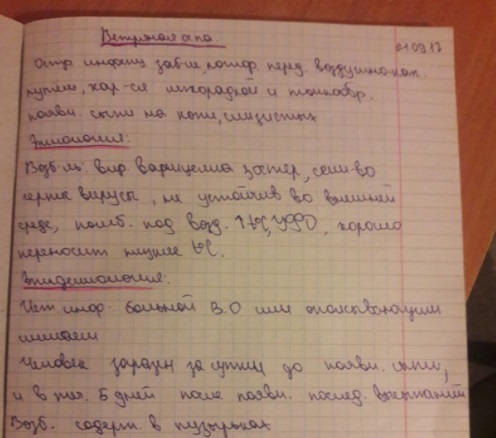 Ветряная оспа. 01.09.17
Остр инфекц забол, котор. перед. воздушно-кап.
путём, хар-ся лихорадкой и
появл. сыпи на коже, слизистых
Этиология:
Возб-ль: вир. варицелла зостер, сем-во
герпес вирусы, не устойчив во внешней
среде, погиб. под возд. ↑ t°C, УФО, хорошо
переносит низкие t°C.
Эпидемиология:
Ист. инфек. больной В.О или опоясывающим
лишаем
Человек заразен за сутки до появл. сыпи,
и в теч. 5 дней после появл. послед. высыпаний
Возб. содерж. в пузырьках